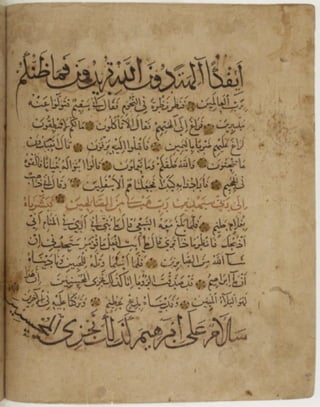 أئفكا آلهة دون الله تريدون فما ظنكم
برب العالمين فنظر نظرة في النجوم فقال إني سقيم فتولوا عنه
مدبرين فراغ إلى آلهتهم فقال ألا تأكلون ما لكم لا تنطقون
فراغ عليهم ضربا باليمين فأقبلوا إليه يزفون قال أتعبدون
ما تنحتون والله خلقكم وما تعملون قالوا ابنوا له بنيانا فألقوه
في الجحيم فأرادوا به كيدا فجعلناهم الأسفلين وقال إني ذاهب
إلى ربي سيهدين رب هب لي من الصالحين فبشرناه
بغلام حليم فلما بلغ معه السعي قال يا بني إني أرى في المنام أني
أذبحك فانظر ماذا ترى قال يا أبت افعل ما تؤمر ستجدني إن
شاء الله من الصابرين فلما أسلما وتله للجبين وناديناه
أن يا إبراهيم قد صدقت الرؤيا إنا كذلك نجزي المحسنين إن هذا
لهو البلاء المبين وفديناه بذبح عظيم وتركنا عليه في الآخرين
سلام على إبراهيم كذلك نجزي المحسنين